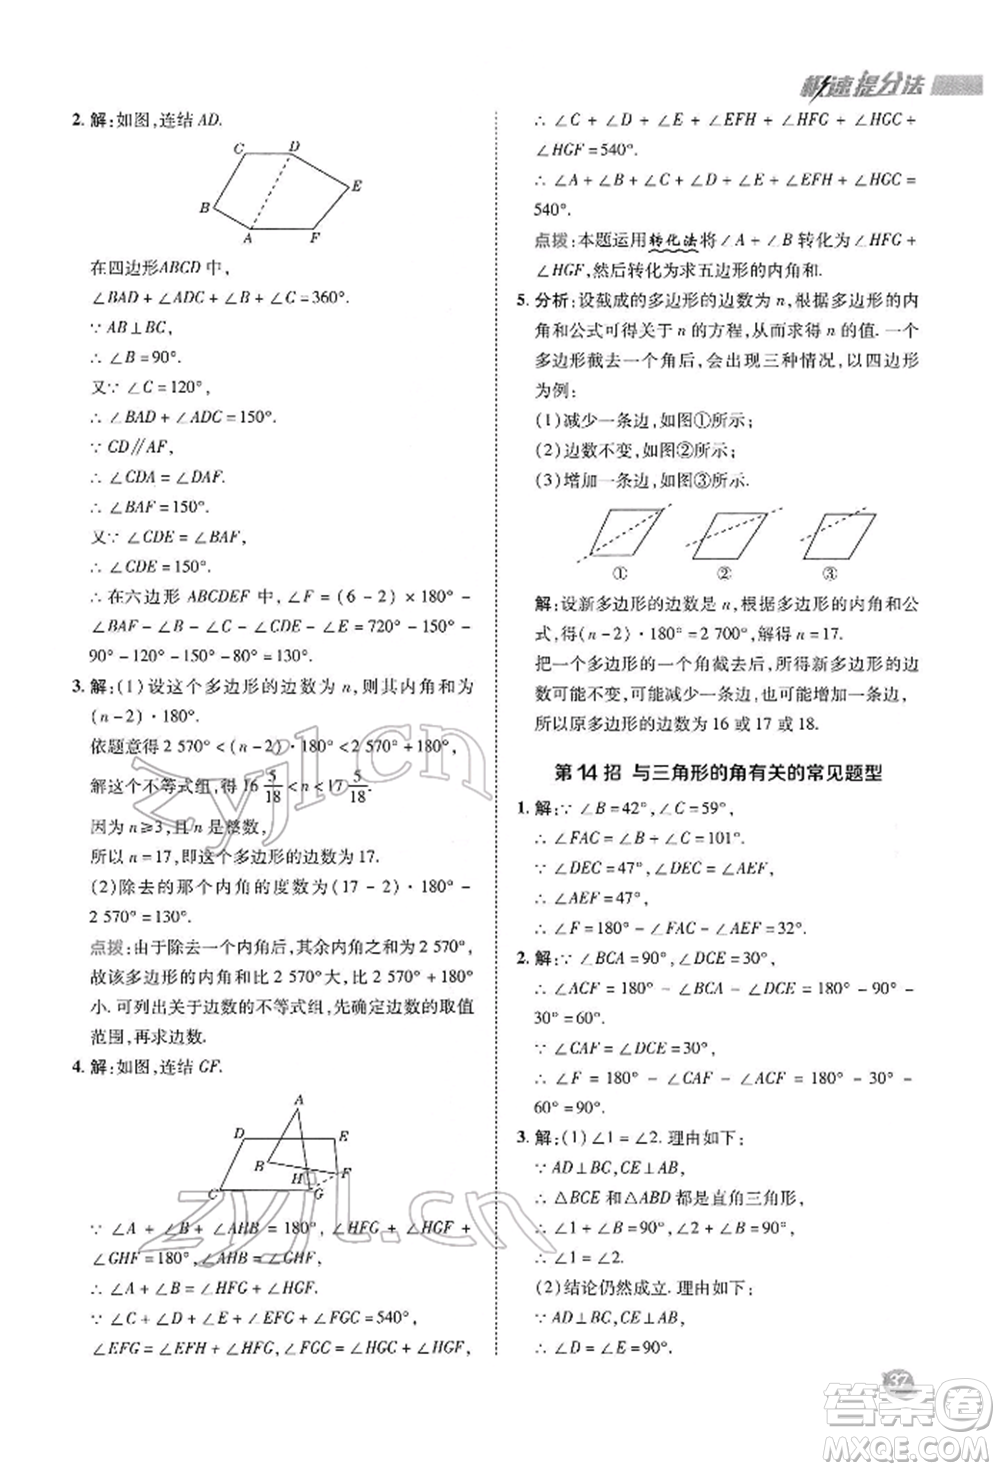 极速提分法
2. 解:如图,连结 AD.
C D E B A F
在四边形ABCD 中,
∠BAD + ∠ADC + ∠B + ∠C = 360°.
∵ AB⊥BC,
∴ ∠B = 90°.
又∵ ∠C = 120°,
∴ ∠BAD + ∠ADC = 150°.
∵ CD∥AF,
∴ ∠CDA = ∠DAF.
∴ ∠BAF = 150°.
又∵ ∠CDE = ∠BAF,
∴ ∠CDE = 150°.
∴ 在六边形 ABCDEF 中,∠F = (6 - 2) × 180° -
∠BAF - ∠B - ∠C - ∠CDE - ∠E = 720° - 150° -
90° - 120° - 150° - 80° = 130°.
3. 解:(1)设这个多边形的边数为 n,则其内角和为
(n - 2)·180°.
依题意得 2 570° < (n - 2)·180° < 2 570° + 180°,
解这个不等式组,得 16 5/18 < n < 17 5/18.
因为 n≥3,且 n 是整数,
所以 n = 17,即这个多边形的边数为 17.
(2)除去的那个内角的度数为(17 - 2)·180° -
2 570° = 130°.
点拨:由于除去一个内角后,其余内角之和为 2 570°,
故该多边形的内角和比 2 570°大,比 2 570° + 180°
小. 可列出关于边数的不等式组,先确定边数的取值
范围,再求边数.
4. 解:如图,连结 GF.
A D E B H F C G
∵ ∠A + ∠B + ∠AHB = 180°, ∠HFG + ∠HGF +
∠GHF = 180°,∠AHB = ∠GHF,
∴ ∠A + ∠B = ∠HFG + ∠HGF.
∵ ∠C + ∠D + ∠E + ∠EFG + ∠FGC = 540°,
∠EFG = ∠EFH + ∠HFG, ∠FGC = ∠HGC + ∠HGF,
∴ ∠C + ∠D + ∠E + ∠EFH + ∠HFG + ∠HGC +
∠HGF = 540°.
∴ ∠A + ∠B + ∠C + ∠D + ∠E + ∠EFH + ∠HGC =
540°.
点拨:本题运用转化法将∠A + ∠B 转化为∠HFG +
∠HGF,然后转化为求五边形的内角和.
5. 分析:设截成的多边形的边数为 n,根据多边形的内
角和公式可得关于 n 的方程,从而求得 n 的值. 一个
多边形截去一个角后,会出现三种情况,以四边形
为例:
(1)减少一条边,如图①所示;
(2)边数不变,如图②所示;
(3)增加一条边,如图③所示.
① ② ③
解:设新多边形的边数是 n,根据多边形的内角和公
式,得(n - 2)·180° = 2 700°,解得 n = 17.
把一个多边形的一个角截去后,所得新多边形的边
数可能不变,可能减少一条边,也可能增加一条边,
所以原多边形的边数为 16 或 17 或 18.
第 14 招 与三角形的角有关的常见题型
1. 解:∵ ∠B = 42°,∠C = 59°,
∴ ∠FAC = ∠B + ∠C = 101°.
∵ ∠DEC = 47°,∠DEC = ∠AEF,
∴ ∠AEF = 47°,
∴ ∠F = 180° - ∠FAC - ∠AEF = 32°.
2. 解:∵ ∠BCA = 90°,∠DCE = 30°,
∴ ∠ACF = 180° - ∠BCA - ∠DCE = 180° - 90° -
30° = 60°.
∵ ∠CAF = ∠DCE = 30°,
∴ ∠F = 180° - ∠CAF - ∠ACF = 180° - 30° -
60° = 90°.
3. 解:(1)∠1 = ∠2. 理由如下:
∵ AD⊥BC,CE⊥AB,
∴ △BCE 和△ABD 是直角三角形,
∴ ∠1 + ∠B = 90°,∠2 + ∠B = 90°,
∴ ∠1 = ∠2.
(2)结论仍然成立. 理由如下:
∵ AD⊥BC,CE⊥AB,
∴ ∠D = ∠E = 90°.
37
zyjl.cn
zyjl.cn
答案圈
MXQE.COM